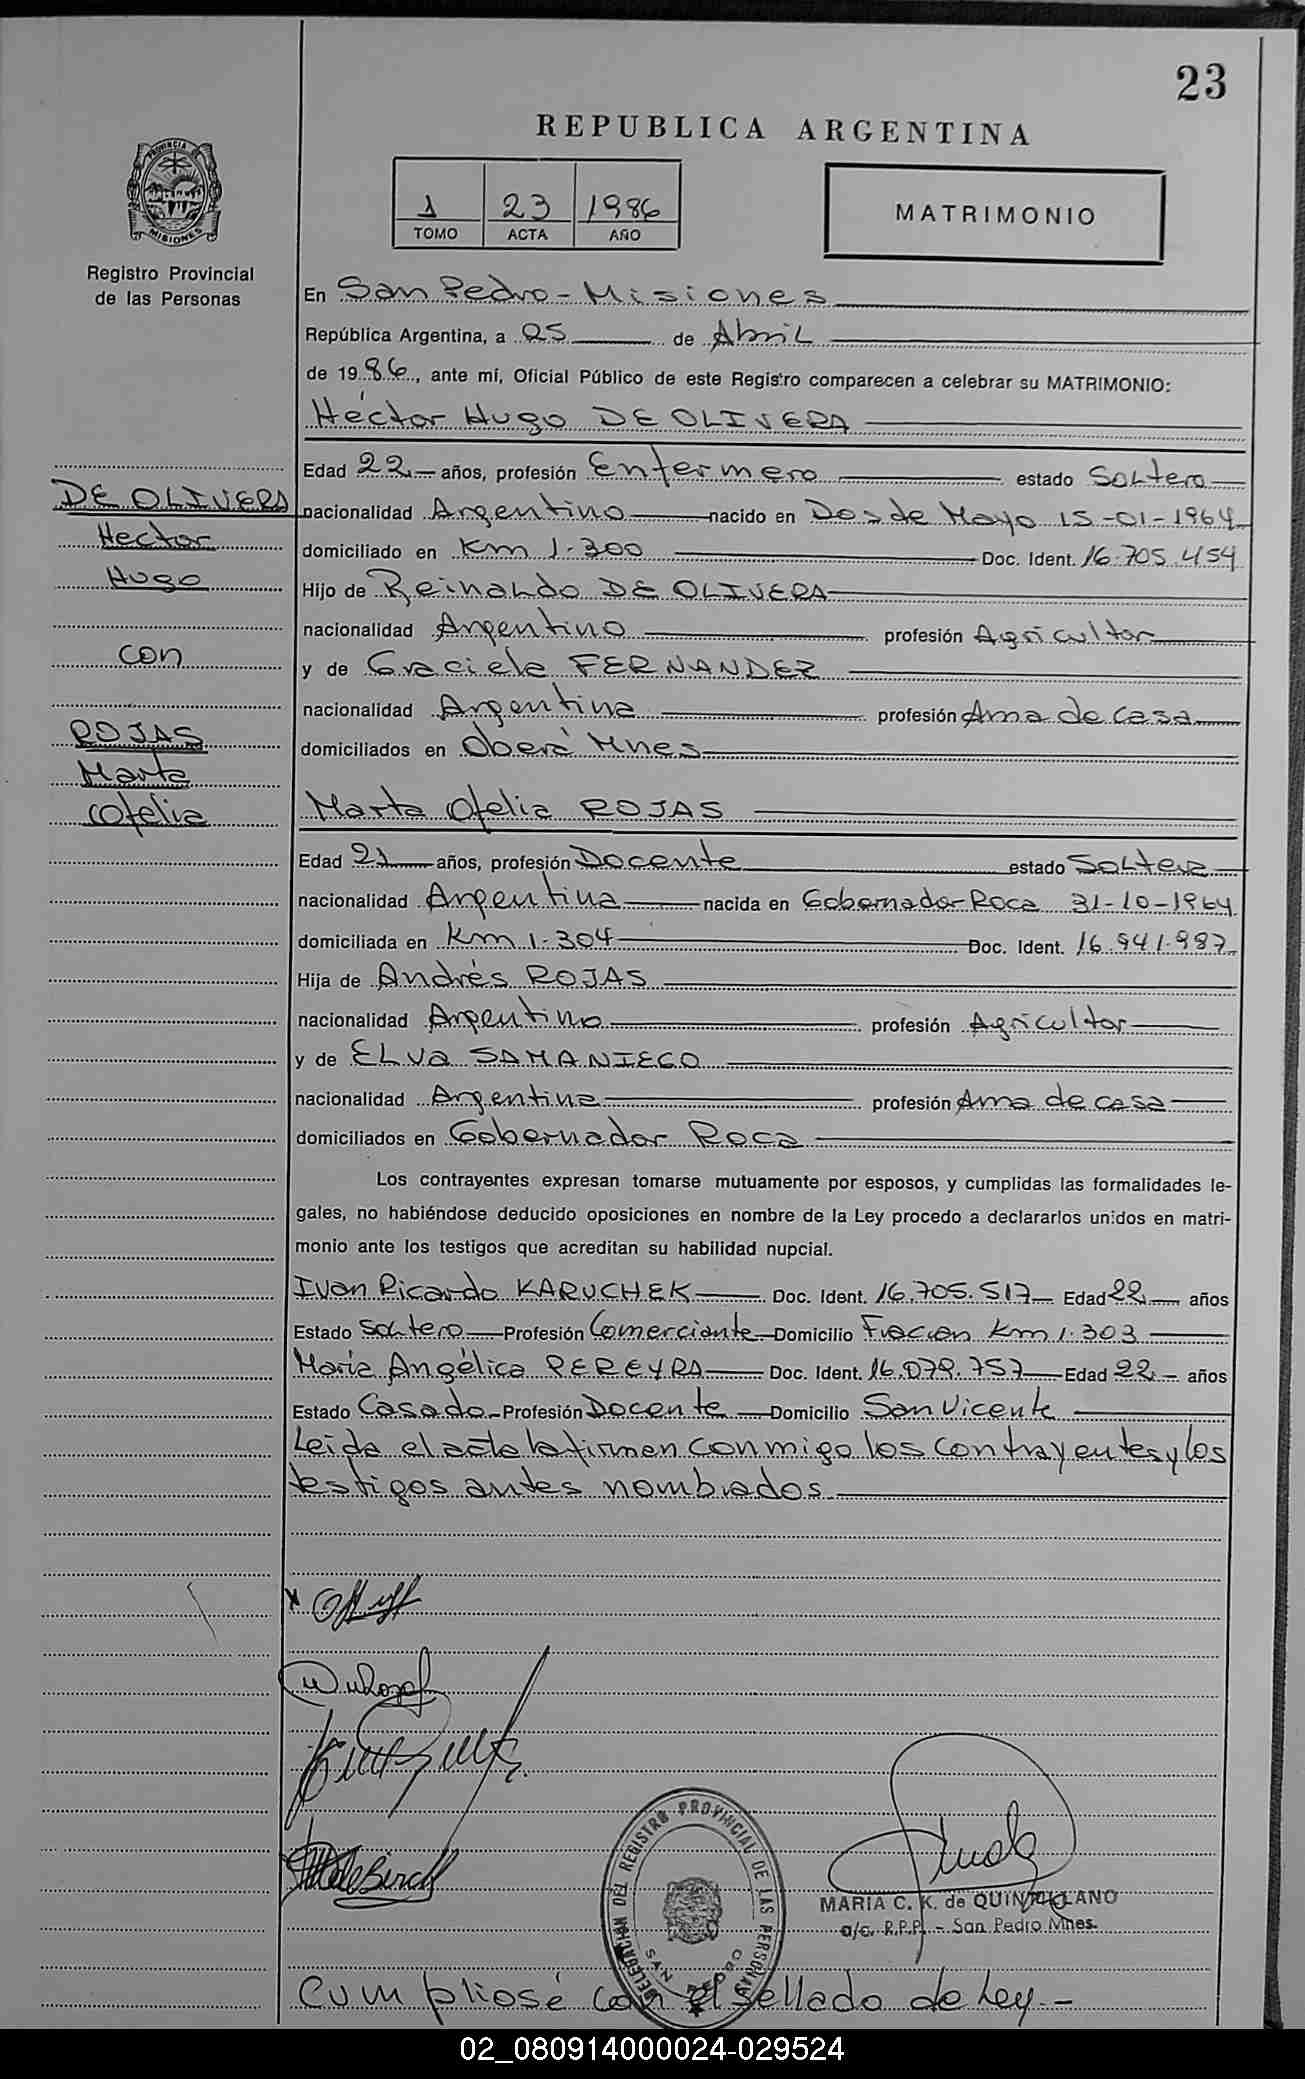 23
REPUBLICA ARGENTINA
PROVINCIA DE
MISIONES
Registro Provincial
de las Personas
1 23 1986
TOMO ACTA AÑO
MATRIMONIO
En San Pedro - Misiones
República Argentina, a 25 de Abril
de 1986, ante mí, Oficial Público de este Registro comparecen a celebrar su MATRIMONIO:
Héctor Hugo DE OLIVERA
Edad 22.- años, profesión Enfermero estado Soltero
DE OLIVERA
Hector
Hugo
con
ROJAS
Marta
Ofelia
nacionalidad Argentino nacido en Dos de Mayo 15-01-1964
domiciliado en Km 1.300 Doc. Ident. 16.705.454
Hijo de Reinaldo DE OLIVERA
nacionalidad Argentino profesión Agricultor
y de Graciela FERNANDEZ
nacionalidad Argentina profesión Ama de casa
domiciliados en Oberá Mnes
Marta Ofelia ROJAS
Edad 21 años, profesión Docente estado Soltera
nacionalidad Argentina nacida en Gobernador Roca 31-10-1964
domiciliada en Km 1.304 Doc. Ident. 16.941.987
Hija de Andrés ROJAS
nacionalidad Argentino profesión Agricultor
y de ELva SAMANIEGO
nacionalidad Argentina profesión Ama de casa
domiciliados en Gobernador Roca
Los contrayentes expresan tomarse mutuamente por esposos, y cumplidas las formalidades le-
gales, no habiéndose deducido oposiciones en nombre de la Ley procedo a declararlos unidos en matri-
monio ante los testigos que acreditan su habilidad nupcial.
Ivan Ricardo KARUCHEK Doc. Ident. 16.705.517 Edad 22 años
Estado Soltero Profesión Comerciante Domicilio Fracran Km 1.303
María Angélica PEREYRA Doc. Ident. 16.079.757 Edad 22.- años
Estado Casado Profesión Docente Domicilio San Vicente
Leida el acta la firman conmigo los contrayentes y los
testigos antes nombrados
DELEGACION DEL REGISTRO PROVINCIAL DE LAS PERSONAS
SAN PEDRO
MARIA C. K. de QUINTILLANO
a/c. R.P.P. - San Pedro Mnes.
Cumpliosé con el sellado de Ley.-
02_080914000024-029524